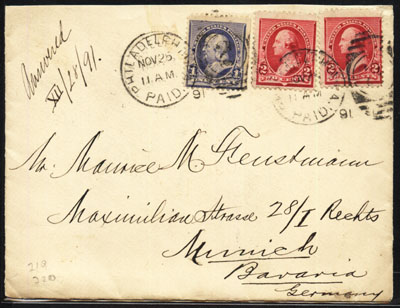 Answered
XII/28/91.
PHILADELPHIA
NOV 25
11 A.M.
PAID.
91
1
2 2
2
11 A.M.
PAID
91
Mr. Maurice M Feustmann
Maximilian Strasse 28/I Rechts
Munich
Bavaria
Germany